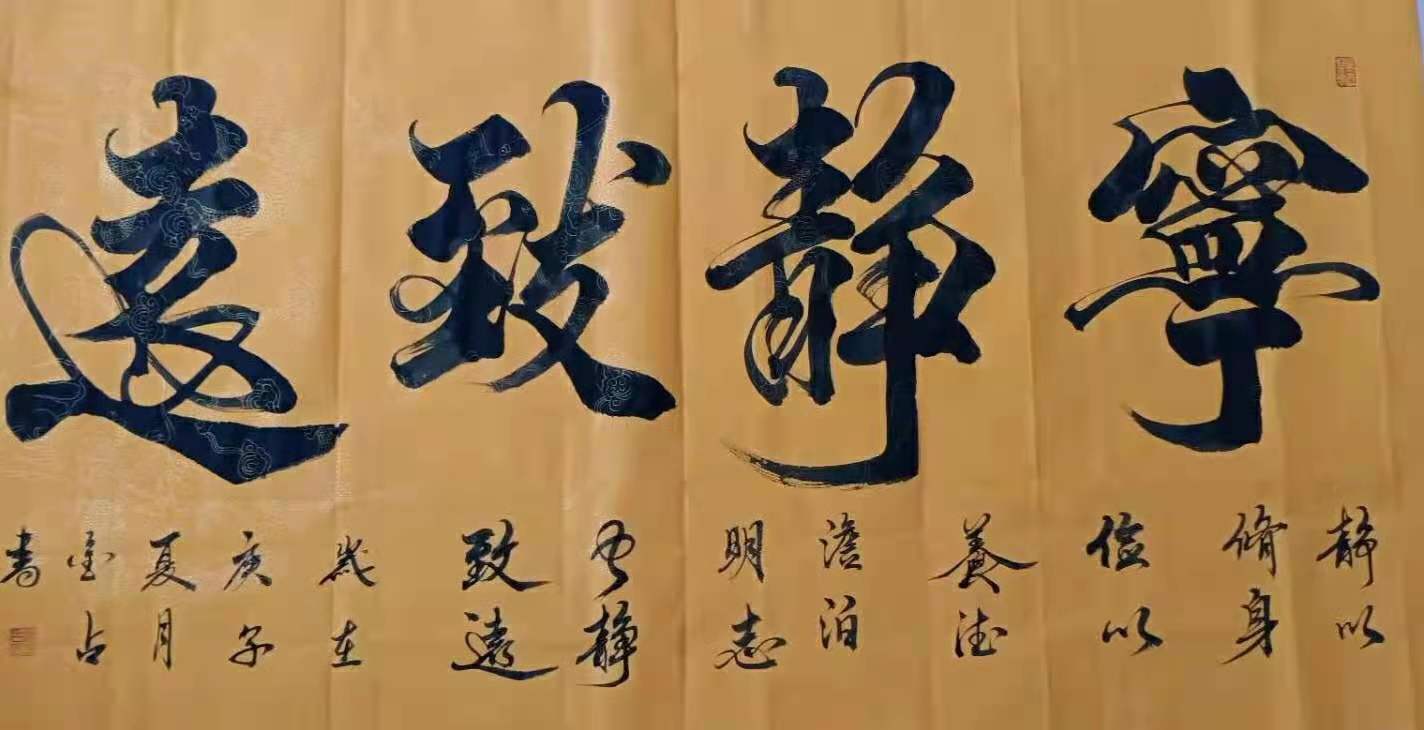 寧靜致遠
靜以
脩身
儉以
養德
澹泊
明志
寧靜
致遠
歲在
庚子
夏月
占
書